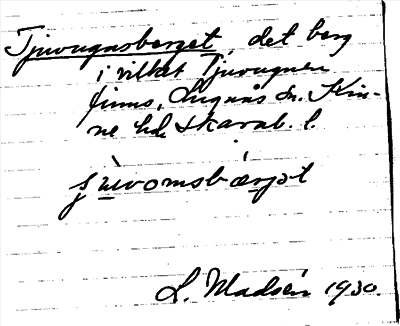 Tjuvugnsberget, det berg
i vilket Tjuvugnen
finns, Lugnås sn. Kin-
ne hd. Skarab. l.
L. Madsén 1930.